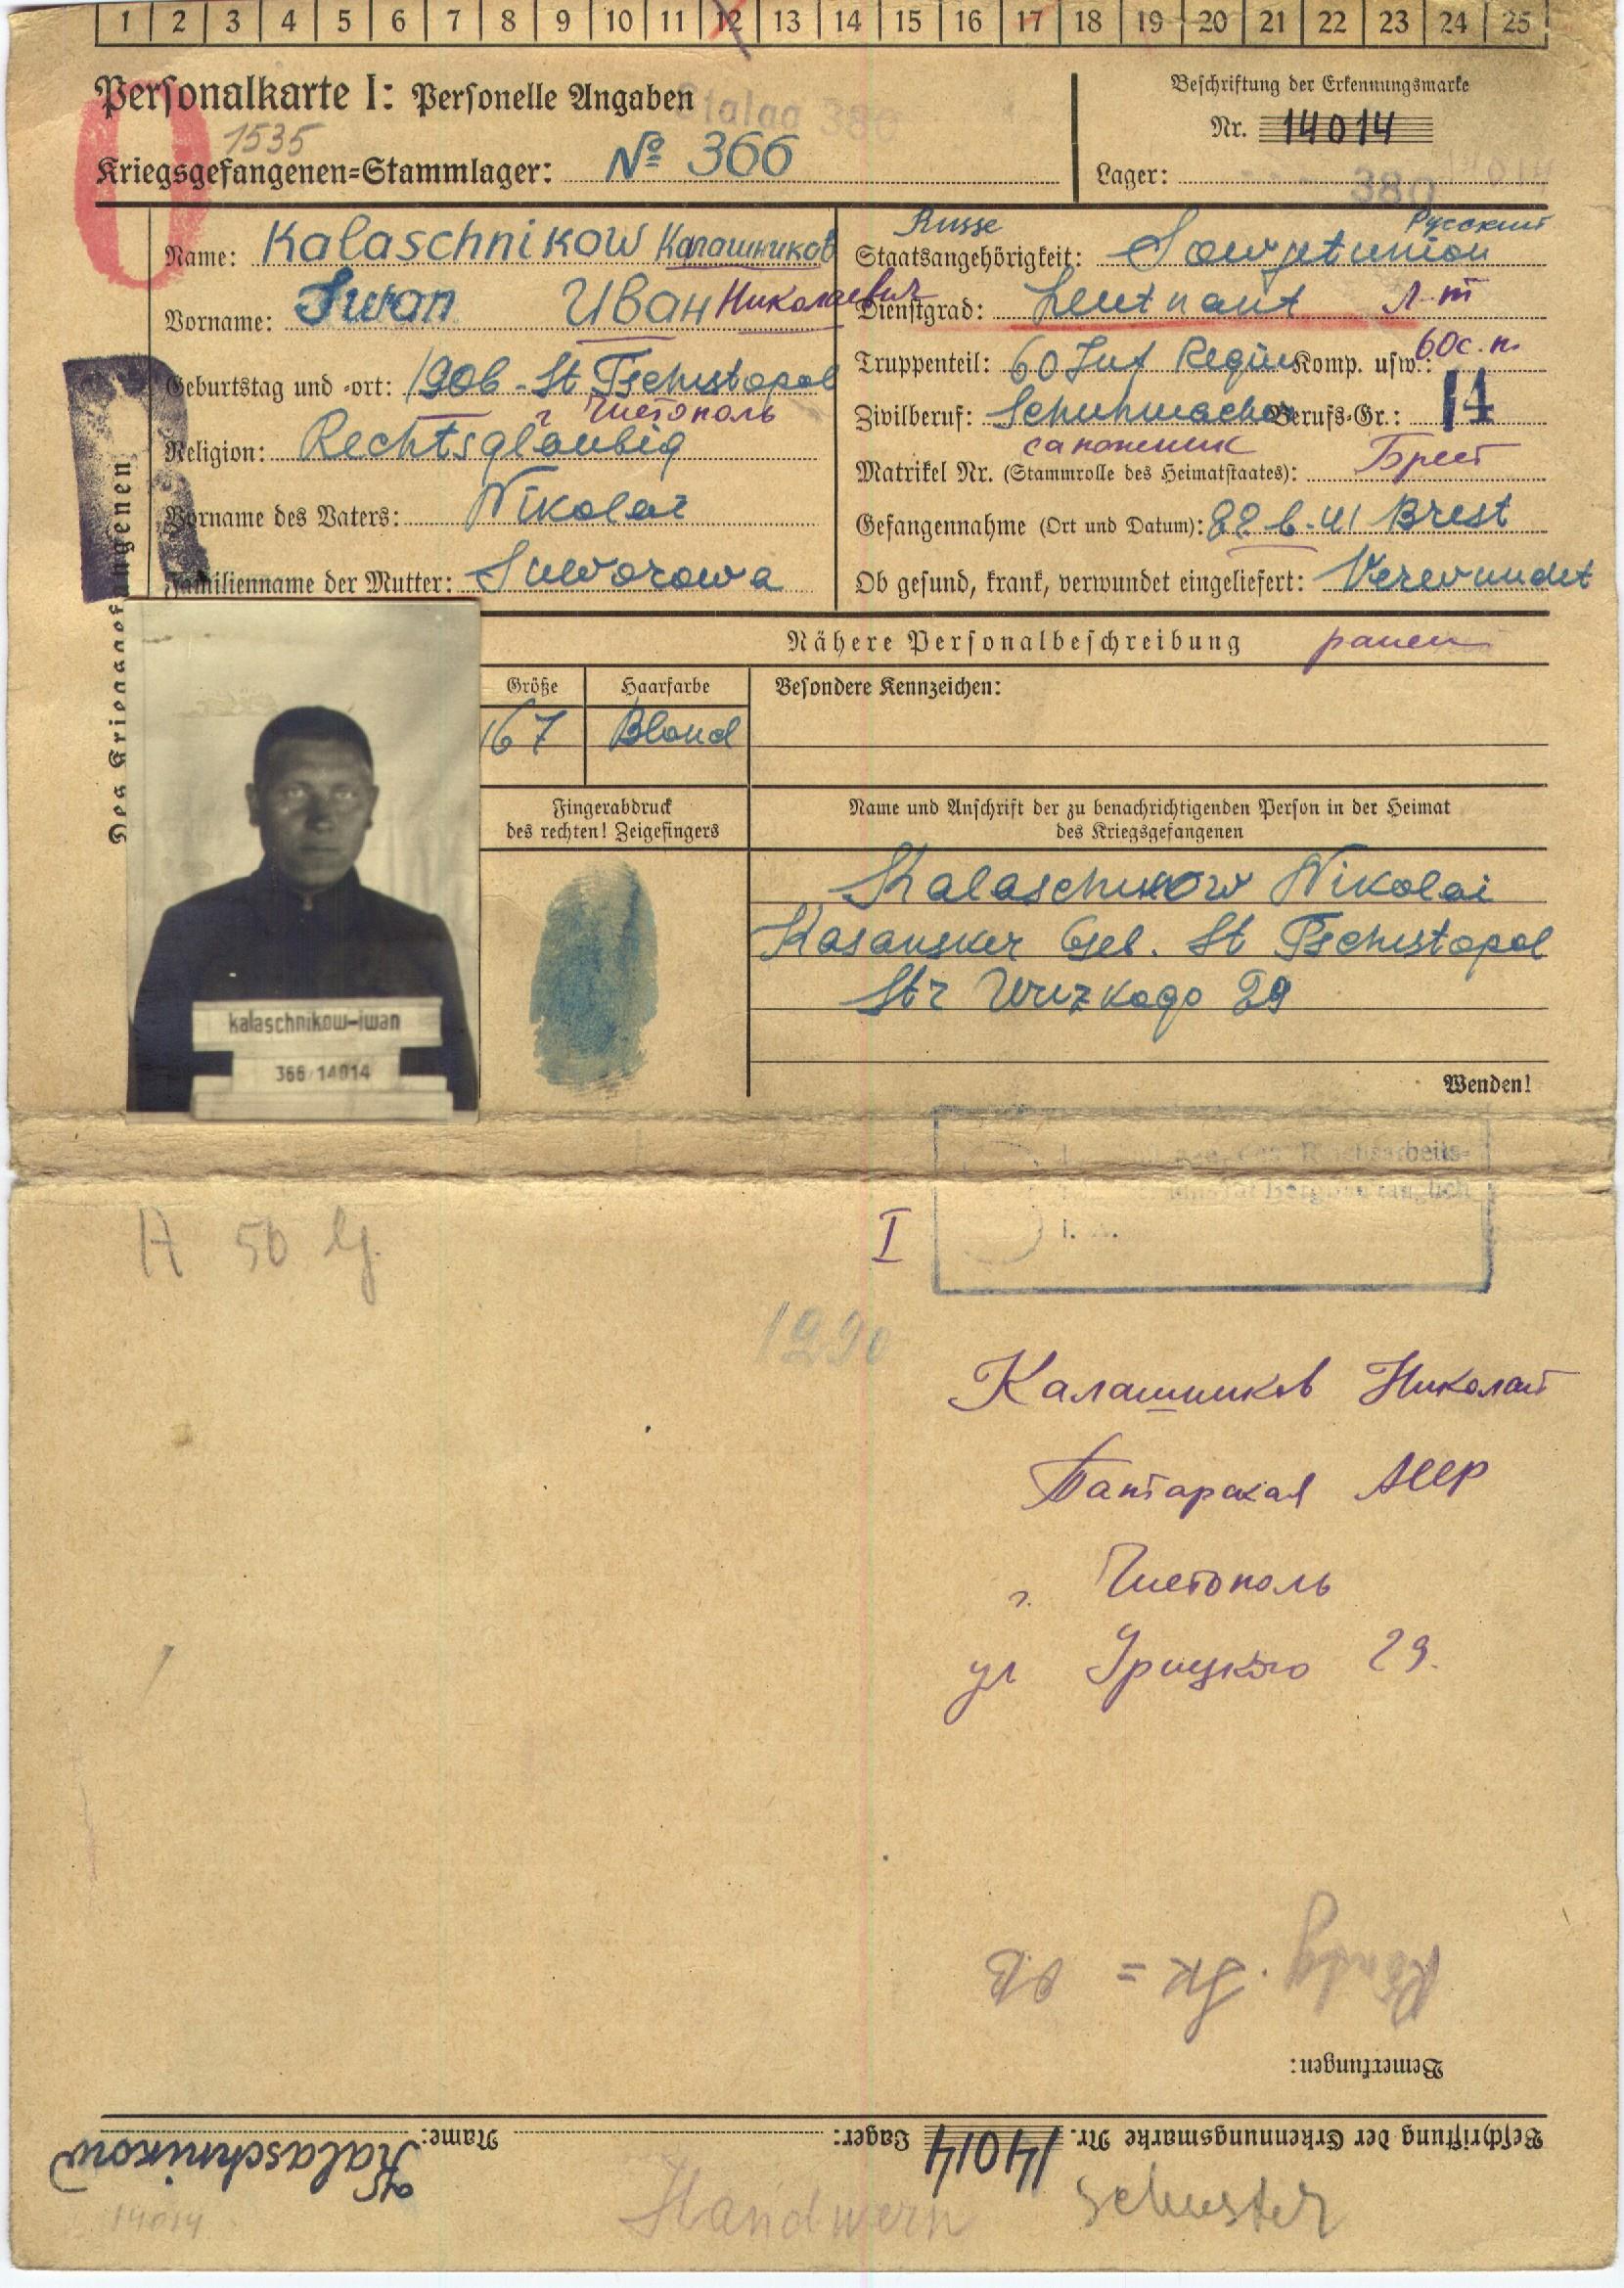 1 2 3 4 5 6 7 8 9 10 11 12 13 14 15 16 17 18 19 20 21 22 23 24 25
Personalkarte I: Personelle Angaben
Stalag 380
Beschriftung der Erkennungsmarke
1535
Nr. 14014
Kriegsgefangenen-Stammlager: № 366
Lager: 380
Name: Kalaschnikow Калашников
Vorname: Iwan Иван Николаевич
Geburtstag und -ort: 1906 - St Tschistopol
г Чистополь
Religion: Rechtsglaubig
Vorname des Vaters: Nikolai
Familienname der Mutter: Suworowa
Russe Русский
Staatsangehörigkeit: Sowjetunion
Dienstgrad: Leutnant Л-т
Truppenteil: 60 Inf Regim Komp. usw.: 60 с.п.
Zivilberuf: Schuhmacher Berufs-Gr.: 14
сапожник
Matrikel Nr. (Stammrolle des Heimatstaates): Брест
Gefangennahme (Ort und Datum): 22.6.41 Brest
Ob gesund, krank, verwundet eingeliefert: Verwundet
Des Kriegsgefangenen
Nähere Personalbeschreibung ранен
Größe Haarfarbe Besondere Kennzeichen:
167 Blond
Fingerabdruck
des rechten! Zeigefingers
Name und Anschrift der zu benachrichtigenden Person in der Heimat
des Kriegsgefangenen
Kalaschnikow Nikolai
Kasansker Geb. St Tschistopol
Str Urizkogo 29
kalaschnikow-iwan
366/14014
Wenden!
I
1290
Калашников Николай
Татарская АССР
г. Чистополь
ул Урицкого 29.
Bemerkungen:
Beschriftung der Erkennungsmarke Nr. 14014 Lager: Name: Kalaschnikow
Schuster
14014